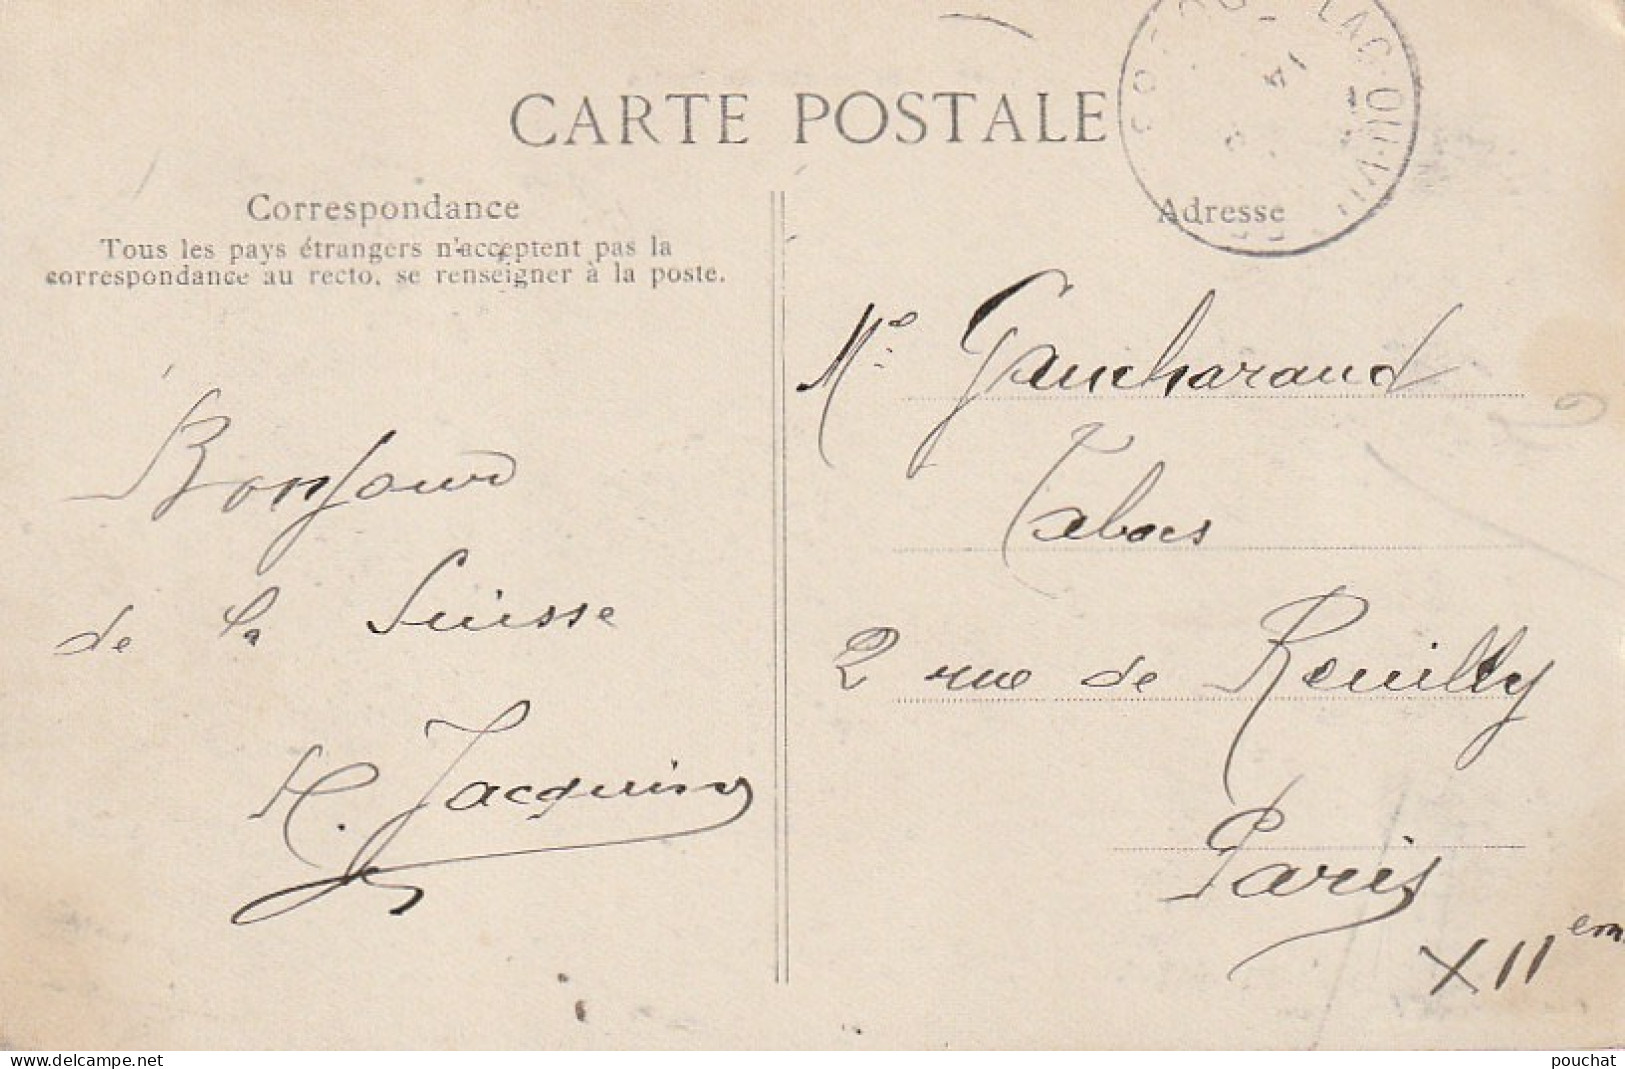 CARTE POSTALE
Correspondance
Tous les pays étrangers n'acceptent pas la
correspondance au recto, se renseigner à la poste.
Bonjour
de la Suisse
H. Jacquin
Adresse
Me Gaucharaud
Tabacs
2 rue de Reuilly
Paris
XII em
LAC-OU-VILL
14
4
pouchat